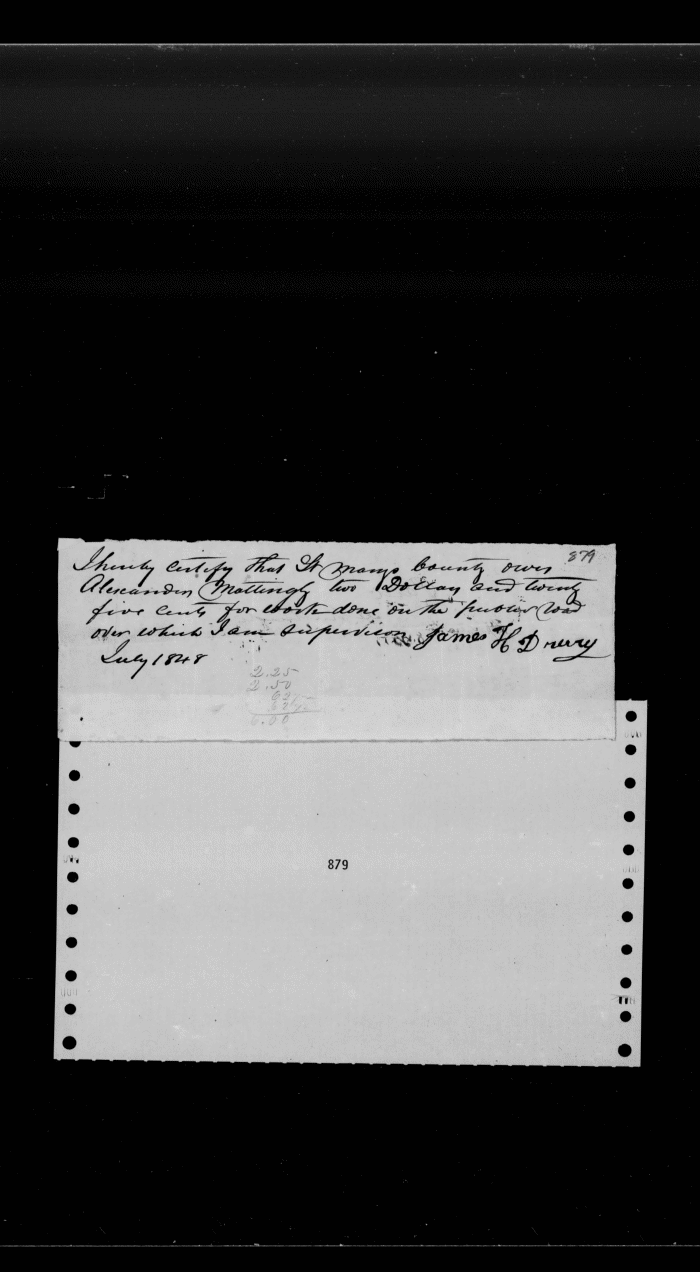 879
I hereby certify that St Marys County owes
Alexander Mattingly two Dollars and twenty
five cents for work done on the public road
over which I am supervisor James H Drury
July 1848
2.25
2.50
62½
62½
6.00
879